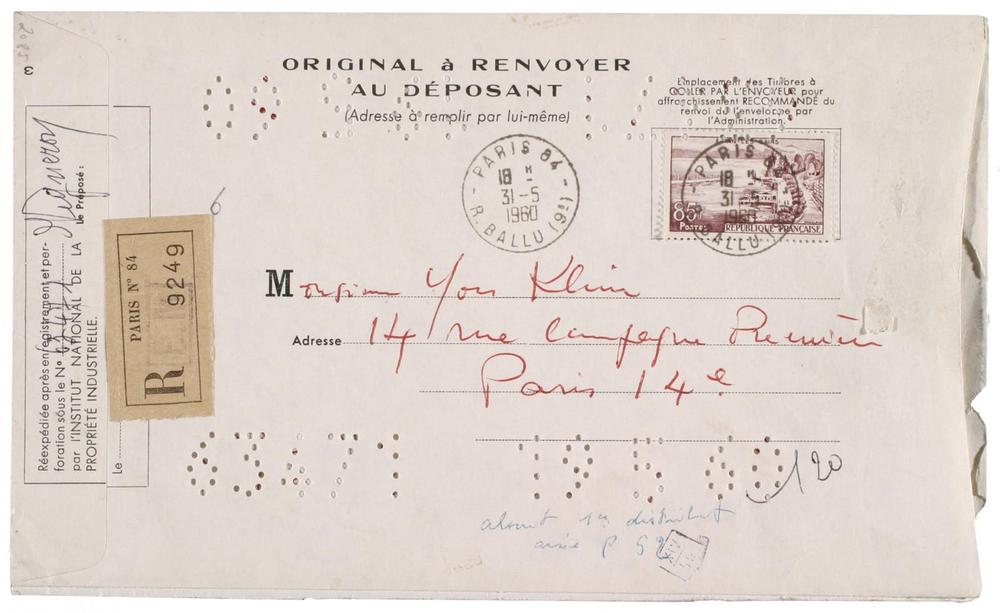 ORIGINAL à RENVOYER
AU DÉPOSANT
(Adresse à remplir par lui-même)
Emplacement des Timbres à
COLLER PAR L'ENVOYEUR pour
affranchissement RECOMMANDÉ du
renvoi de l'enveloppe par
l'Administration.
PARIS 84
18 H
31-5
1960
R. BALLU (9e)
PARIS 84
18 H
31-5
1960
R. BALLU (9e)
85F
POSTES
RÉPUBLIQUE FRANÇAISE
Monsieur Yves Klein
Adresse 14 rue Campagne Première
Paris 14e
63471 19 5 60
120
absent 1re distribut
avisé P 52
Réexpédiée après enregistrement et per-
foration sous le No 63471
par l'INSTITUT NATIONAL DE LA
PROPRIÉTÉ INDUSTRIELLE.
Le Préposé :
Le
PARIS No 84
R 9249